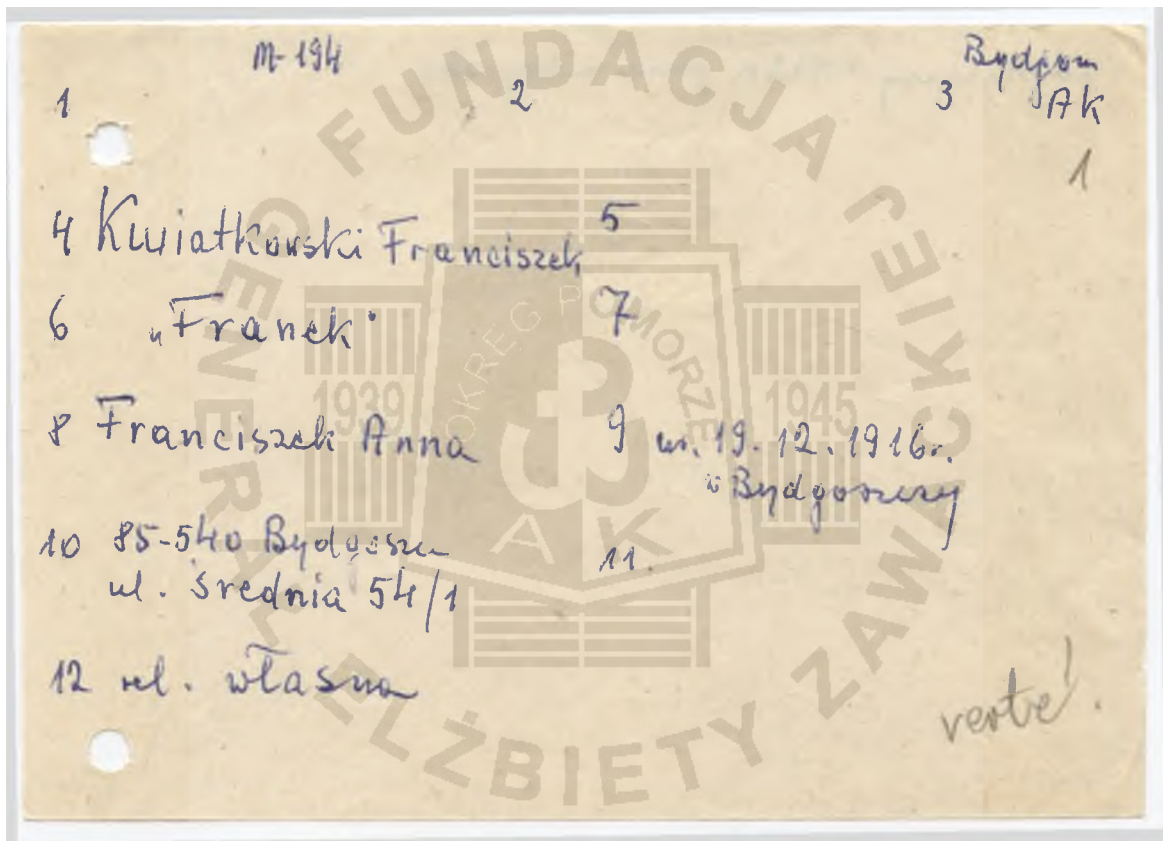 M-194
Bydgom
1 2 3 AK
1
4 Kwiatkowski Franciszek 5
6 „Franek" 7
8 Franciszek Anna 9 ur. 19. 12. 1916r.
w Bydgoszczy
10 85-540 Bydgoszcz 11.
ul. Średnia 54/1
12 rel. własna
verte!
FUNDACJA GENERAŁ ELŻBIETY ZAWACKIEJ
OKRĘG POMORZE
1939 1945
AK